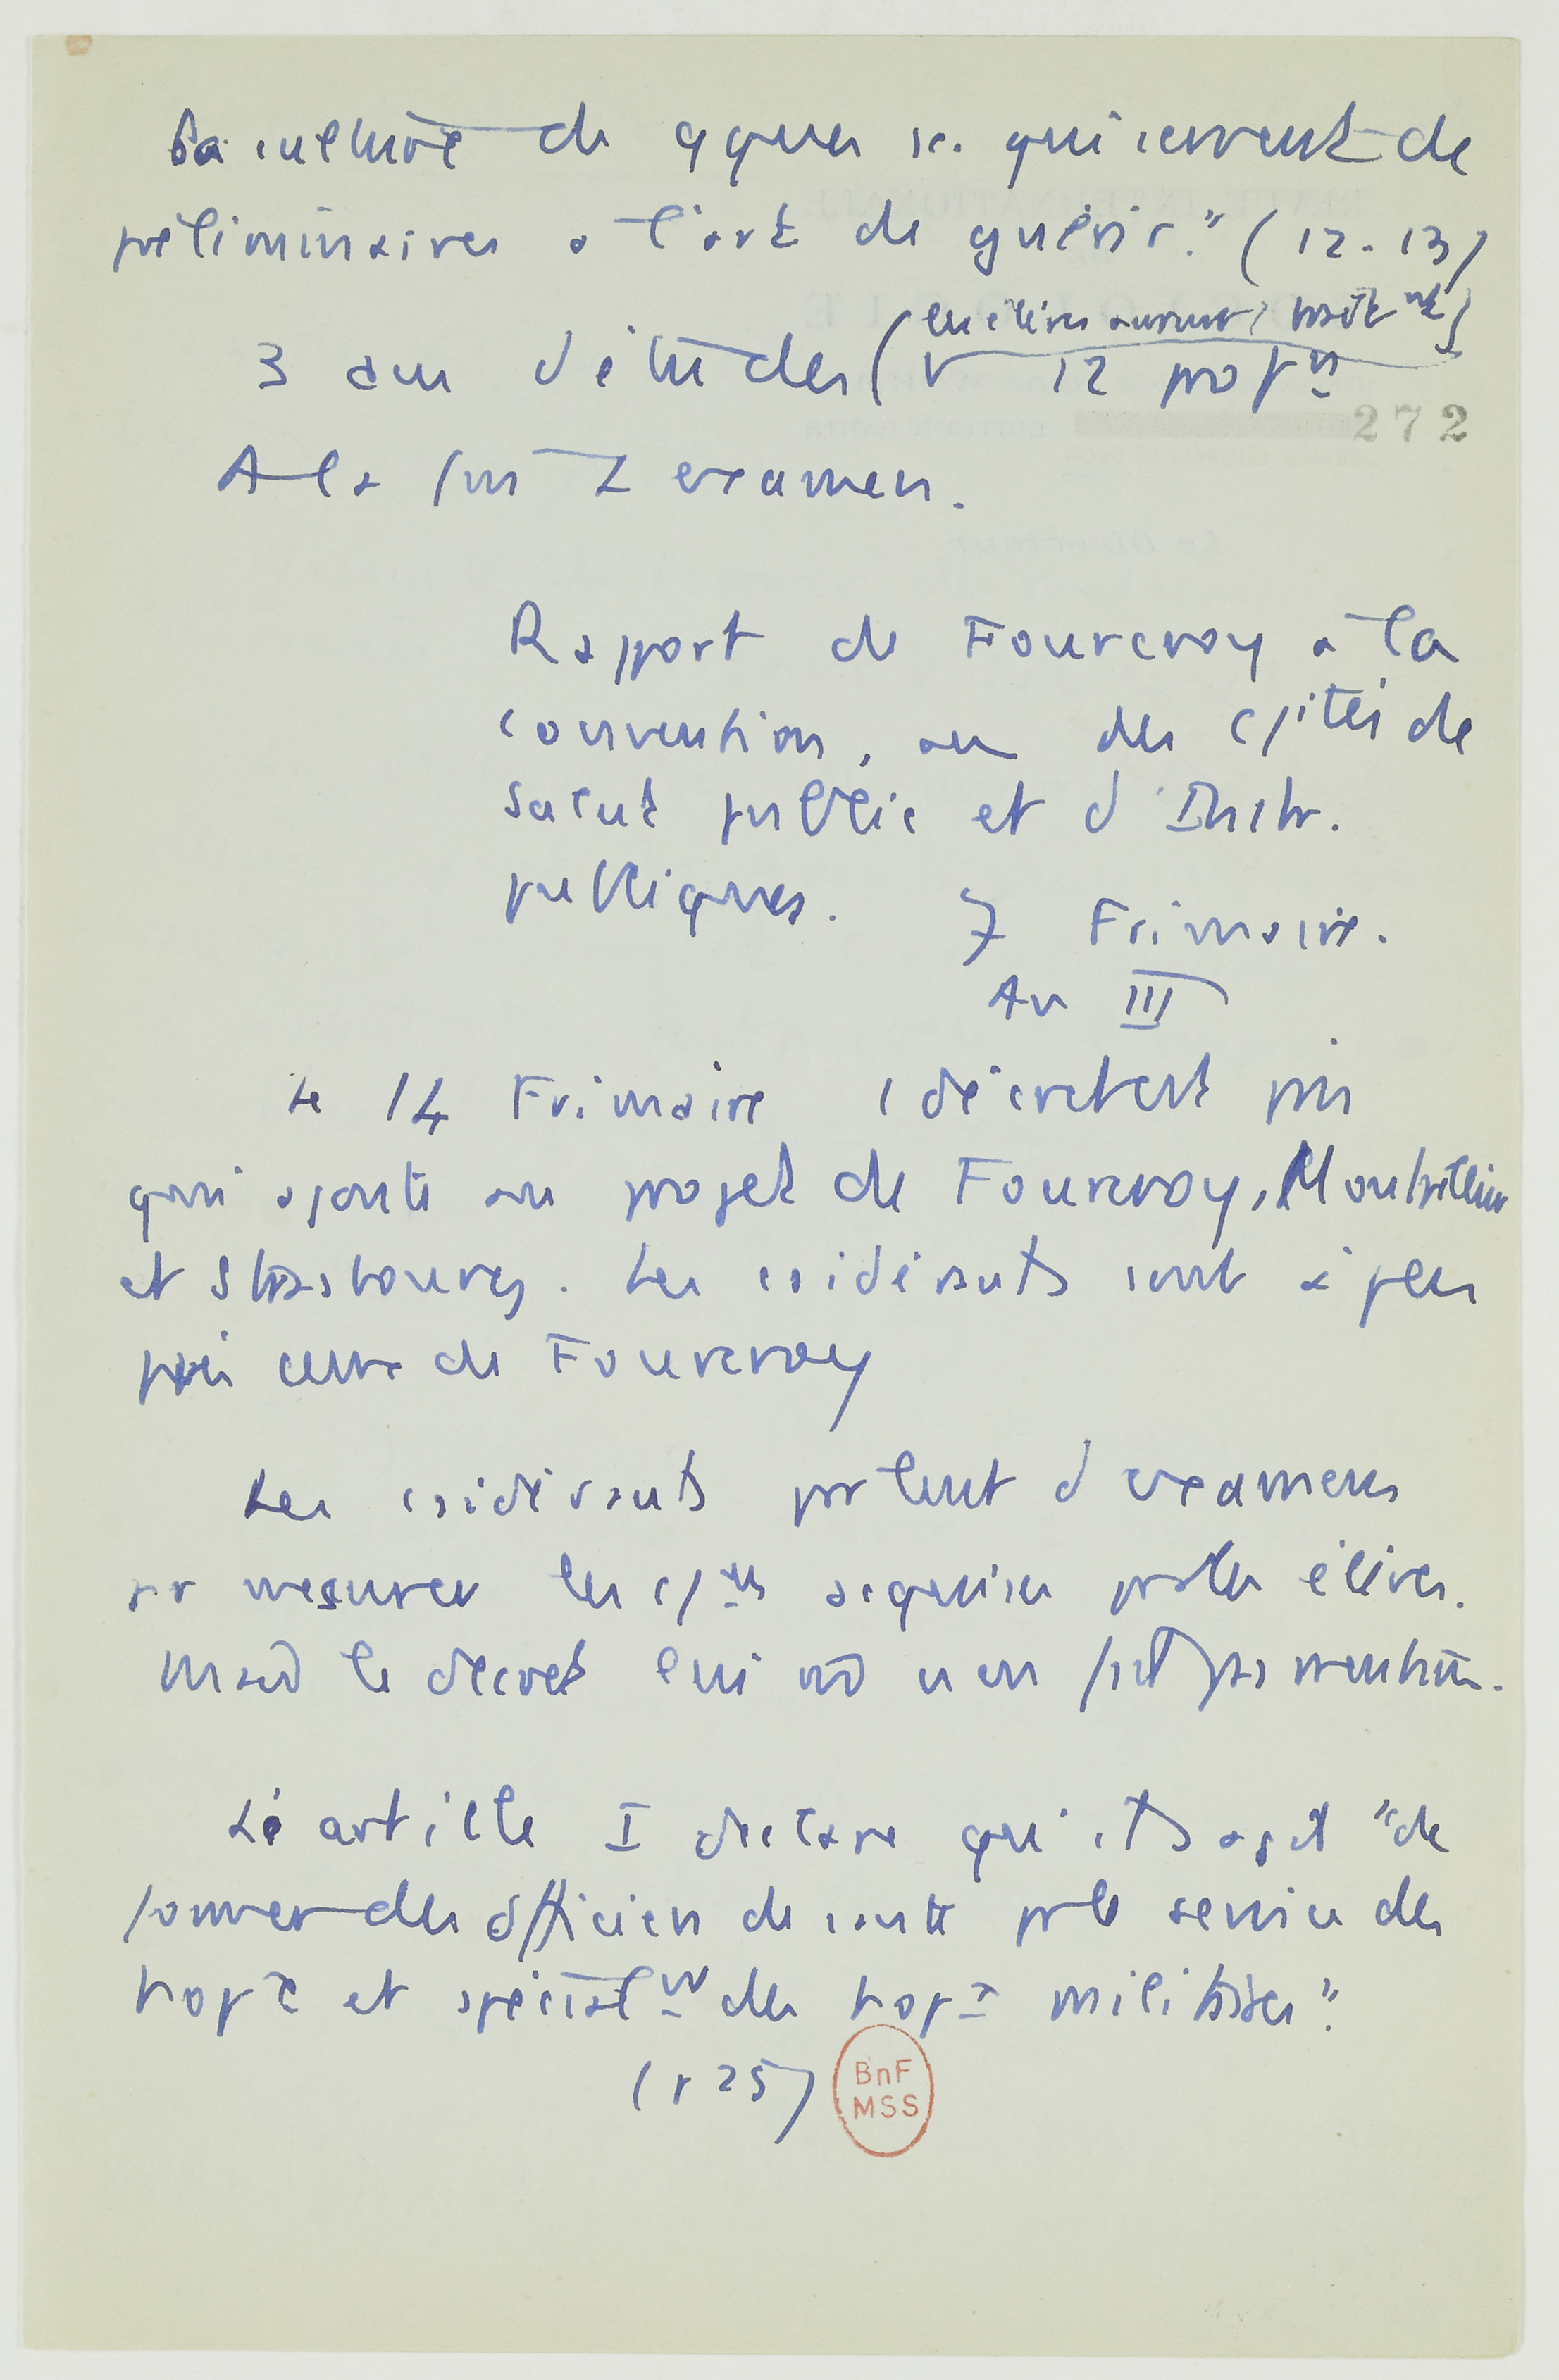 la culture de qques sc. qui servent de
préliminaires a l'art de guérir." (12-13)
(les élèves auront 1 trait nt)
3 ans d'études ( 12 profrs
272
A la fin 2 examens.
Rapport de Fourcroy a la
convention, au des c/ités de
Salut public et d'Instr.
publiques. 7 Frimaire.
An III
Le 14 Frimaire 1 décret est pris
qui ajoute au projet de Fourcroy, Montpellier
et Strasbourg. Les csidérants sont à peu
près ceux de Fourcroy
Les csidérants parlent d'examens
pr mesurer les c/ces acquises par les élèves.
Mais le décret lui m n'en fait pas mention.
L'article I déclare qu'il s'agit "de
former des officiers de santé pr le service des
hopx et spécialnt des hopx militaires".
(p 25)
BnF
MSS